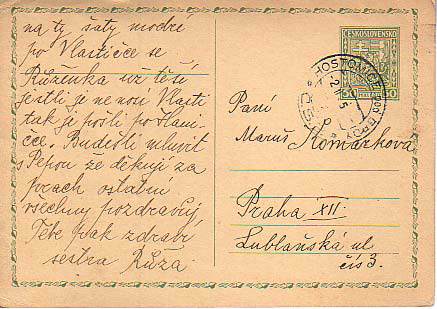 na ty šaty modré
po Vlastičce se
Růženka už těší
jestli je ne nosí Vlasti
tak je pošli po Slani-
čce. Budešli mluvit
s Pepou ze děkuji za
hrach ostatní
všechny pozdravuj
Tebe pak zdraví
sestra Růža.
ČESKOSLOVENSKO
50 50
HOSTOMICE POD BRDY
ČSR
Paní
Maruš Komárková
Praha XII
Lublaňská ul
čís 3.